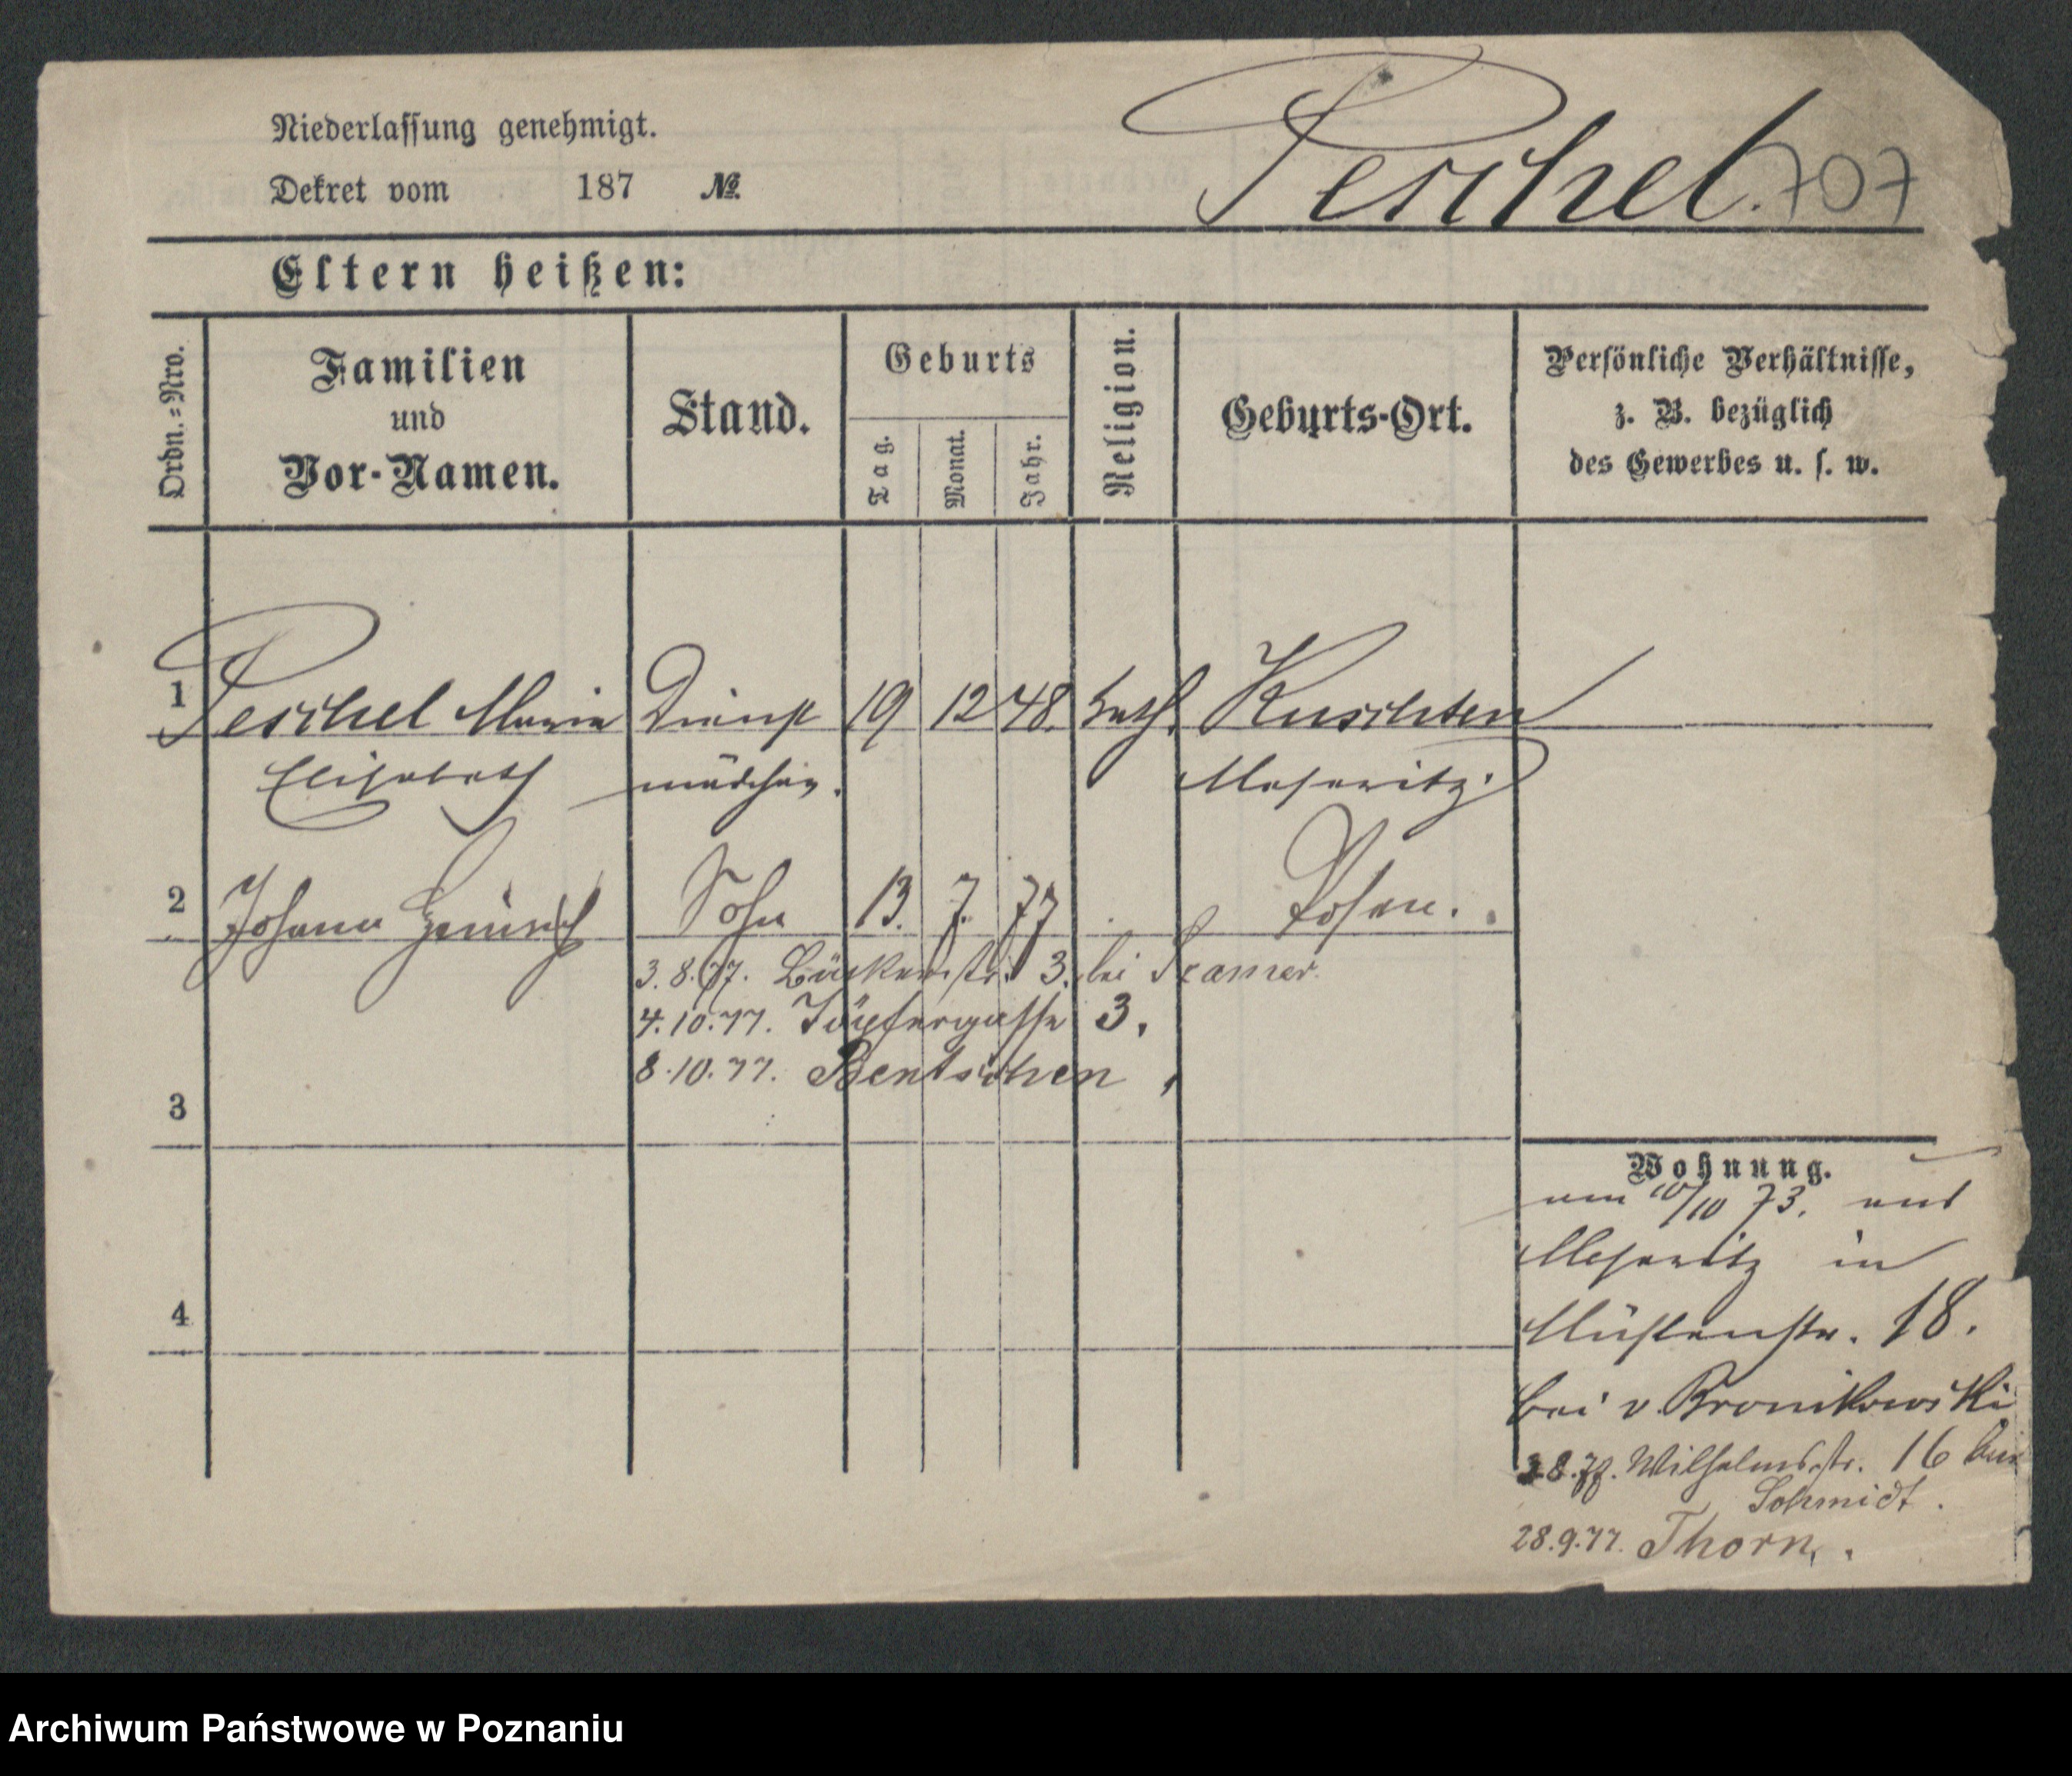 Niederlassung genehmigt.
Dekret vom 187 No.
Peschel. 707
Eltern heißen:
Ordn.=Nro.
Familien
und
Vor-Namen.
Stand.
Geburts
Tag.
Monat.
Jahr.
Religion.
Geburts-Ort.
Persönliche Verhältnisse,
z. B. bezüglich
des Gewerbes u. s. w.
1 Peschel Maria Dienst 19 12 48. kath. Kuschten
Elisabeth mädchen. Meseritz.
2 Johann Heinrich Sohn 13. 7. 77 Posen.
3.8.77. Bäckerstr. 3. bei Kramer
4.10.77. Töpfergasse 3.
8.10.77. Bentschen
3
4
Wohnung.
10/10 73. aus
Meseritz in
Mühlenstr. 18.
bei v. Bronikowski
3.8.77. Wilhelmsstr. 16 bei
Schmidt.
28.9.77. Thorn.
Archiwum Państwowe w Poznaniu